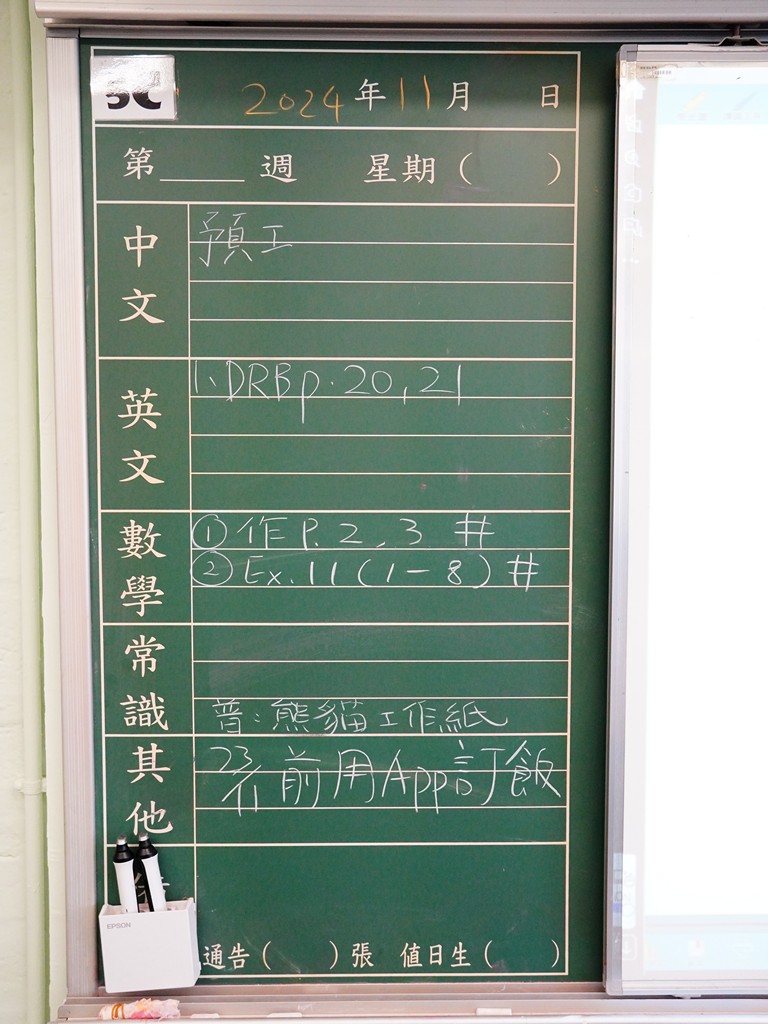 5C
2024年11月 日
第____週 星期( )
中文
預工
英文
1、DRB p.20,21
數學
① 作 P.2,3 #
② Ex.11(1-8) #
常識
普:熊貓工作紙
其他
23/11 前用App訂飯
EPSON
通告( )張 值日生( )